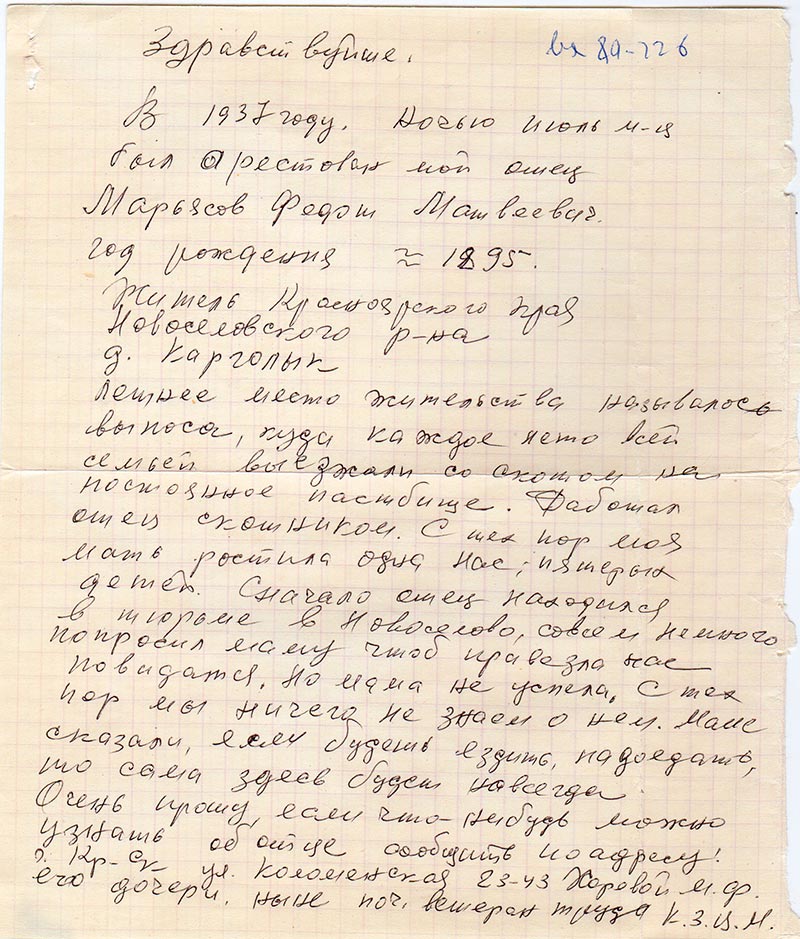 Здравствуйте.
вх 89-226
В 1937 году. ночью июль м-ця
был арестован мой отец
Марьясов Федот Матвеевич.
год рождения ≈ 1895.
Житель Красноярского края
Новоселовского р-на
д. Карголык
летнее место жительства называлось
выноса, куда каждое лето всей
семьей выезжали со скотом на
постоянное пастбище. Работал
отец скотником. С тех пор моя
мать ростила одна нас; пятерых
детей. Сначало отец находился
в тюрьме в Новоселово, совсем немного
попросил маму чтоб привезла нас
повидатся. Но мама не успела. С тех
пор мы ничего не знаем о нем. Маме
сказали, если будешь ездить, надоедать,
то сама здесь будеш навсегда
Очень прошу, если что-нибудь можно
узнать об отце сообщить по адресу!
г. Кр-ск ул. Коломенская 23-43 Жаровой М.Ф.
его дочери. ныне поч. ветеран труда К.З.Ц.М.